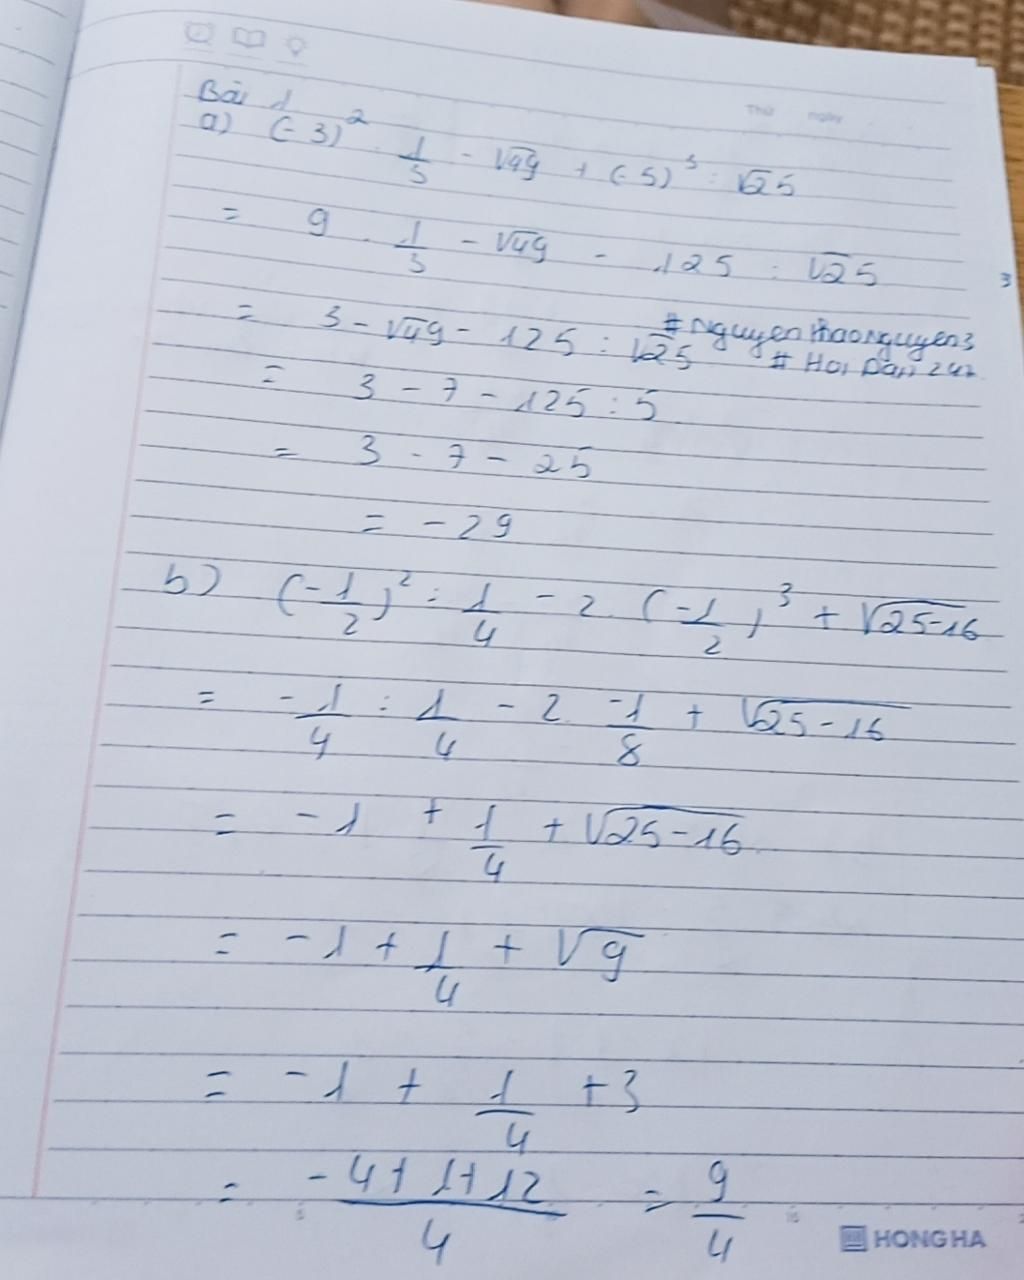 Bài 1
Thứ ngày
a) (-3)² . 1/3 - √49 + (-5)³ : √25
= 9 . 1/3 - √49 - 125 : √25
3
= 3 - √49 - 125 : √25
#NguyenThaoNguyen3
# Hoi Dap 247
= 3 - 7 - 125 : 5
= 3 - 7 - 25
= -29
b) (-1/2)² : 1/4 - 2 . (-1/2)³ + √25-16
= -1/4 : 1/4 - 2 . -1/8 + √25-16
= -1 + 1/4 + √25-16
= -1 + 1/4 + √9
= -1 + 1/4 + 3
= -4+1+12/4 = 9/4
HONG HA